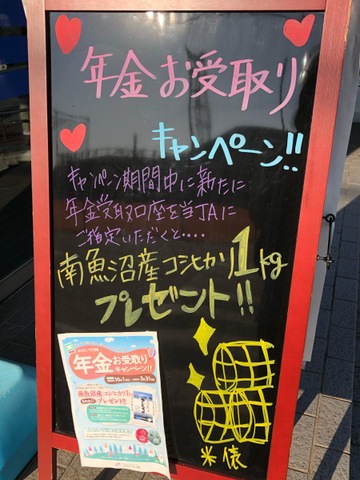 年金お受取り
キャンペーン!!
キャンペーン期間中に新たに
年金受取口座を当JAに
ご指定いただくと····
南魚沼産コシヒカリ1kg
プレゼント!!
年金お受取り
キャンペーン!!
南魚沼産コシヒカリを
プレゼント!!
米俵